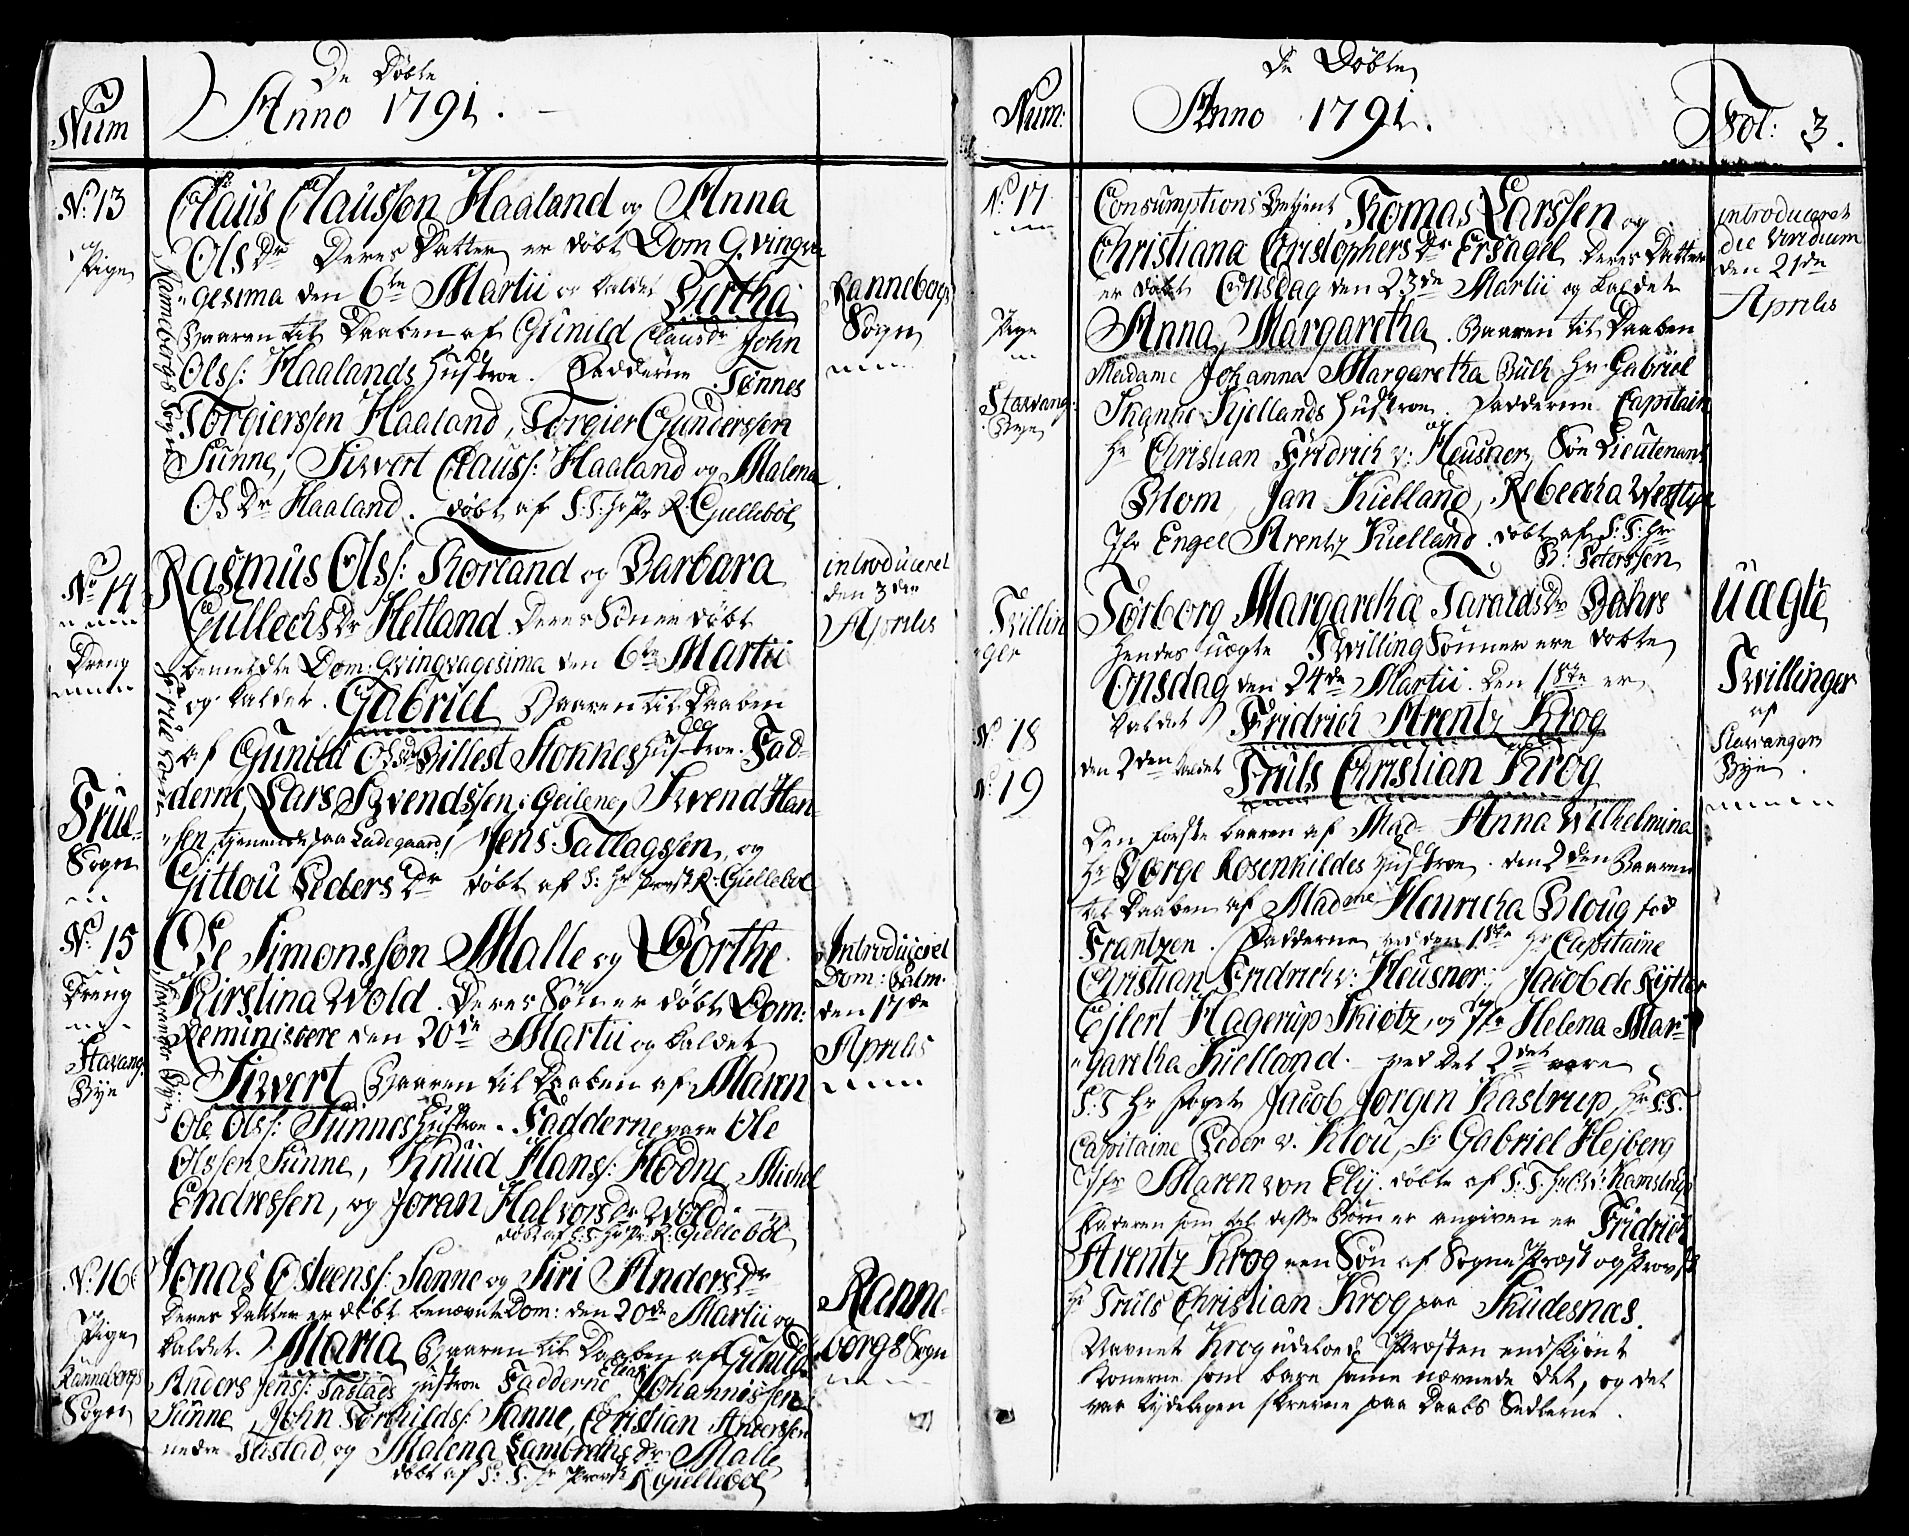 De Döbte
Anno 1791.
Num
No. 13
Pige
Claus Claussen Haaland og Anna
Ols Dr Deres Datter er döbt Dom Qvinqva
gesima den 6te Martii og kaldet Bertha
Baaren til Daaben af Gunild Clausdr John
Olss: Haalands Hustroe. Fadderne Tönnes
Torgierssen Haaland, Torgier Gunderssen
Sunne, Sivert Clauss: Haaland og Malena
Ols Dr Haaland. döbt af S:T: Hr Pr R: Gjelleböl
Ranneberg Sogn
Ranneberg
Sogn
No 14
Dreng
Frue
Sogn
Rasmus Olss: Korland og Barbara
Gullechs Dr Hetland. Deres Sön er döbt
bemeldte Dom: Qvinqvagesima den 6te Martii
og kaldet. Gabriel Baaren til Daaben
af Gunild Olsdr Billest Stonnes Hustroe. Fad-
derne, Lars Svendssen, Geilene, Svend Han-
sen, tjenende paa Ladegaard, Jens Tallagssen, og
Gittou Peders Dr döbt af S: Hr Provst R: Gjelleböl
introduceret
den 3den
Aprilis
No: 15
Dreng
Stavang:
Bye
Ole Simonssön Malle og Dorthe
Kirstina Wold. Deres Sön er döbt Dom:
Reminiscere den 20de Martii og kaldet
Sivert Baaren til Daaben af Maren
Ole Olss: Sunnes Hustroe. Fadderne vare Ole
Olssen Sunne, Knud Hanss: Hodne, Michel
Endressen, og Joran Halvors Dr Wold
döbt af S:T: Hr Pr: R: Gjelleböl
Stavanger Bye
Introduceret
Dom: Palm.
den 17de
Aprilis
No: 16
Pige
Ranneberg
Sogn
Jonas Osteenss: Sanne og Siri Anders Dr
Deres Datter er döbt benævnte Dom: den 20de Martii og
kaldet. Maria Baaren til Daaben af Gunild
Anders Jenss: Tastads Hustroe Fadderne Elias Johannissen
Sunne, John Torkildss: Sanne, Christian Anderssen
nedre Tastad, og Malena Lambrethis Dr Malle
döbt af S: T: Hr Provst R: Gjelleböl
Ranne-
bergs Sogn
De Döbte
Anno 1791.
Num:
Fol: 3.
No: 17
Pige
Stavang:
Bye
Consumptions Betjent Thomas Larssen og
Christiana Christophers Dr Ersagel Deres Datter
er döbt Onsdag den 23de Martii og kaldet
Anna Margaretha. Baaren til Daaben
Madame Johanna Margaretha Bull Hr Gabriel
Skanke Kjellands Hustroe. Fadderne Capitain
Hr Christian Fridrich v: Heusner, og Söe Lieutenant
Blom, Jan Kielland, Rebecha Westlye
Jfr Engel Arentz Kielland. döbt af S: T: Hr
B: Peterssen
introduceret
die Viridium
den 21de
Aprilis
Tvillin
ger
No 18
No: 19
Törborg Margaretha Taralds Dr Bahrs
hendes uægte Tvilling Sönner ere döbte
Onsdag den 24de Martii. Den 1ste er
kaldet Fridrich Arentz Krog
den 2den kaldet Truls Christian Krog
Den förste baaren af Mad- Anna Wilhelmina
Hr Börge Rosenkildes Hustroe. den 2den Baaren
til Daaben af Madme Henricha Bloug föd
Frantzen. Fadderne ved den 1ste Hr Capitaine
Christian Fridrich v: Heusner, Jacob de Rytter
Ejlert Hagerup Skiötz, og Jfr Helena Mar-
garetha Kielland. ved det 2det vare
S: T Hr Foget Jacob Jörgen Kastrup, Hr S:T:
Capitaine Peder v. Klou, Sr Gabriel Hejberg
Jfr Maren von Ely. döbte af S: T: Kamstrup
Faderen som til disse Börn er angiven er Fridrich
Arentz Krog een Sön af Sogne Præst og Provst
Hr Truls Christian Krog paa Skudesnæs.
Navnet Krog udelod Præsten endskjönt
Konerne som bare samme nævnede det, og det
var tydeligen skrevne paa Daabs Sedlerne.
uægte
Tvillinger
af
Stavanger
Bye